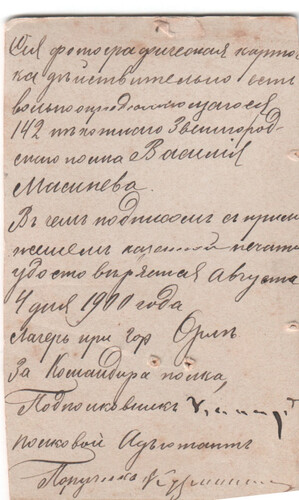 Сія фотографическая карточ
ка дѣйствительно есть
вольноопредѣляющагося
142 пѣхотнаго Звенигород-
скаго полка Василія
Масинева.
Въ чемъ подписомъ съ прило
женіемъ казенной печати
удостовѣряется Августа
4 дня 1900 года
Лагерь при гор Орлѣ
За Командира полка,
Подполковникъ
полковой Адъютантъ
Поручикъ